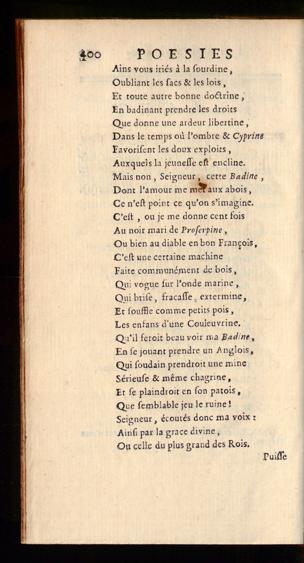 400 POESIES
Ains vous iriés à la sourdine,
Oubliant les sacs & les lois,
Et toute autre bonne doctrine,
En badinant prendre les droits
Que donne une ardeur libertine,
Dans le temps où l'ombre & Cyprine
Favorisent les doux exploits,
Auxquels la jeunesse est encline.
Mais non, Seigneur, cette Badine,
Dont l'amour me met aux abois,
Ce n'est point ce qu'on s'imagine.
C'est, ou je me donne cent fois
Au noir mari de Proserpine,
Ou bien au diable en bon François,
C'est une certaine machine
Faite communément de bois,
Qui vogue sur l'onde marine,
Qui brise, fracasse, extermine,
Et souffle comme petits pois,
Les enfans d'une Couleuvrine.
Qu'il feroit beau voir ma Badine,
En se jouant prendre un Anglois,
Qui soudain prendroit une mine
Sérieuse & même chagrine,
Et se plaindroit en son patois,
Que semblable jeu le ruine!
Seigneur, écoutés donc ma voix:
Ainsi par la grace divine,
Ou celle du plus grand des Rois.
Puisse